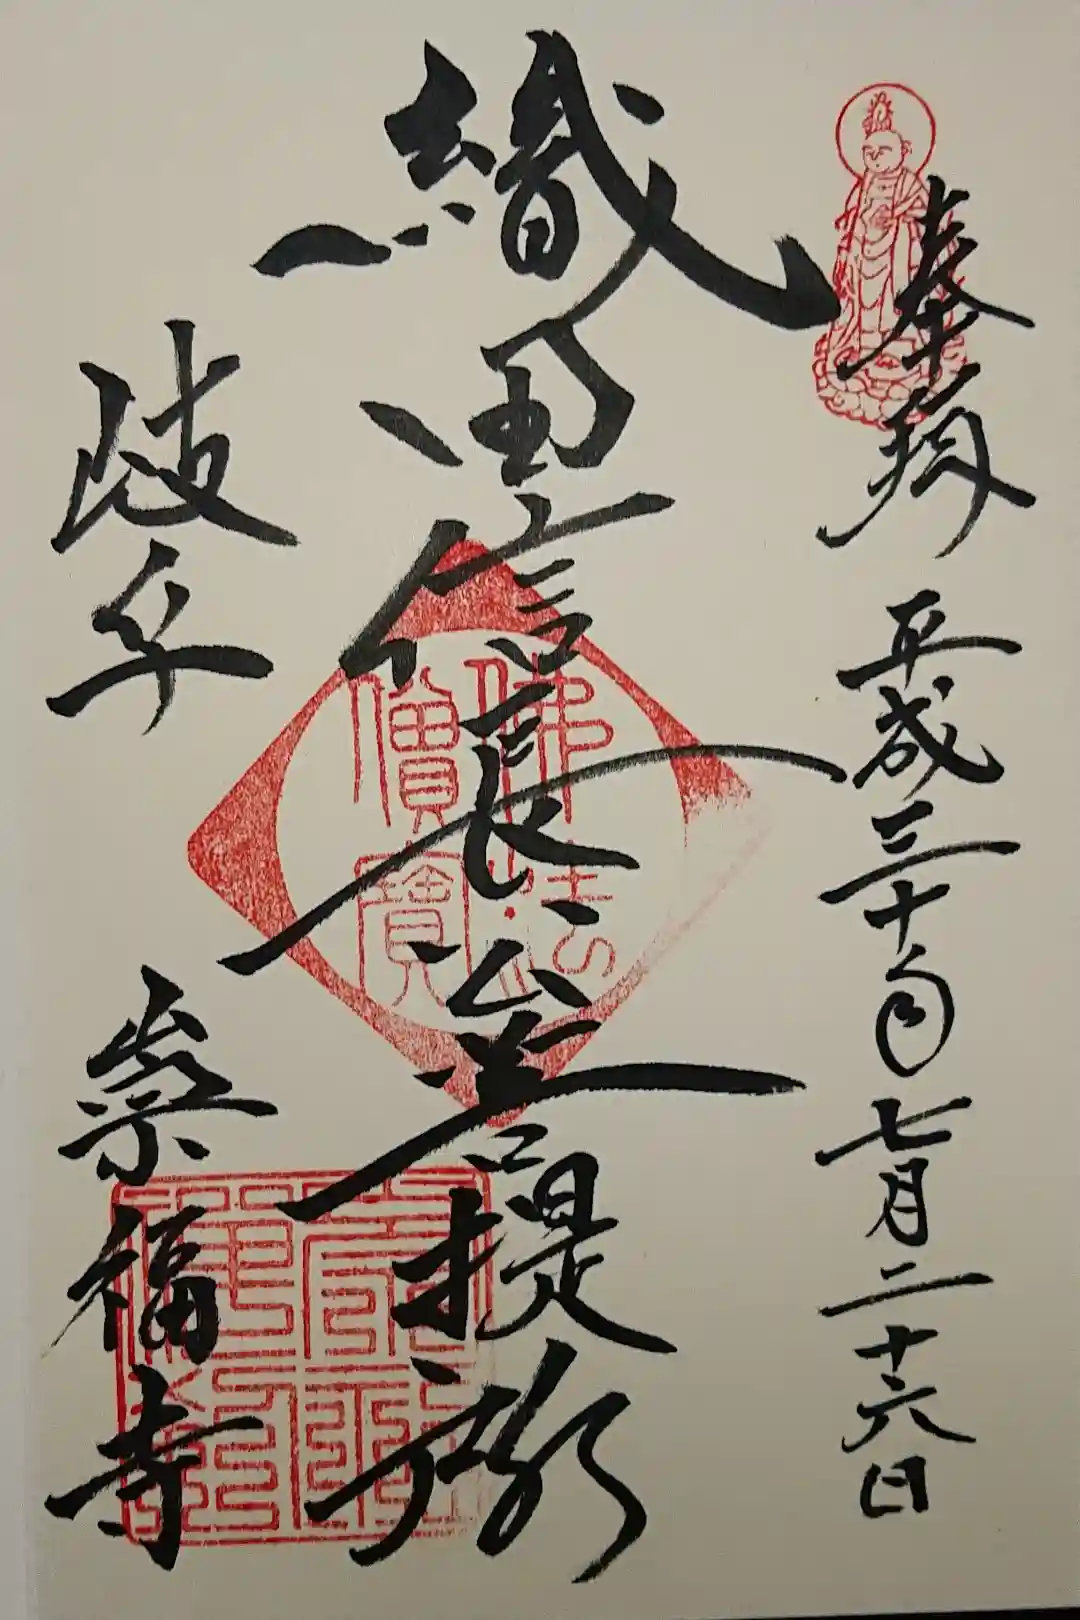 奉拝 平成三十年七月二十六日
織田信長公菩提所
岐阜 崇福寺
佛法
僧寳